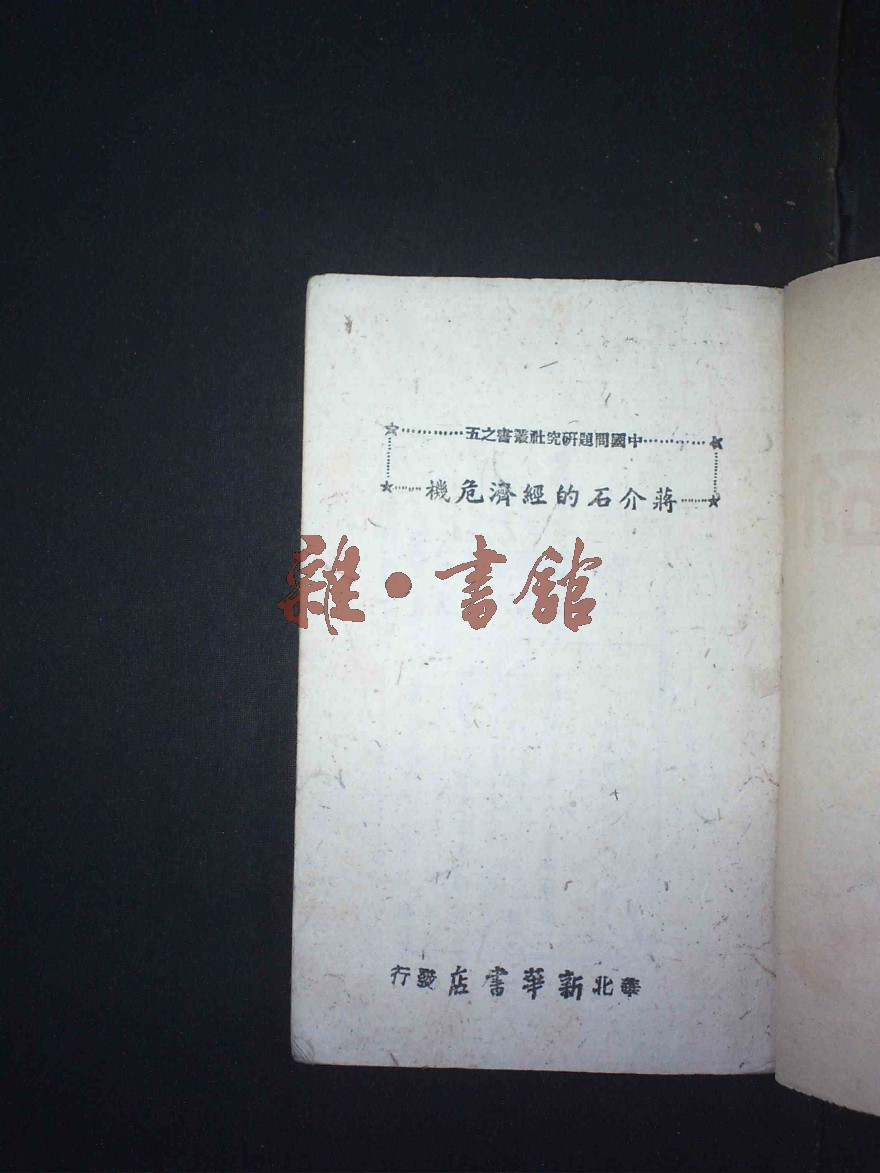 中國問題研究社叢書之五
蔣介石的經濟危機
雜·書館
華北新華書店發行